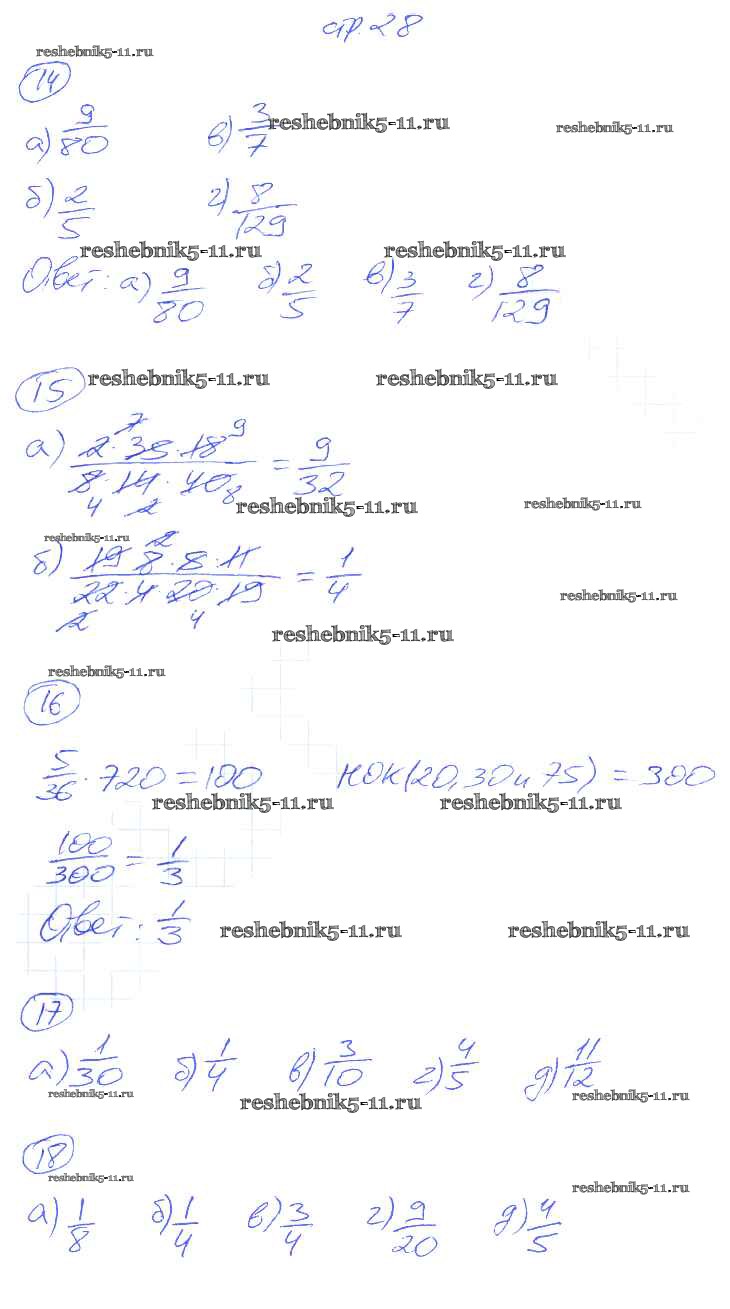 стр. 28
reshebnik5-11.ru
14
а) 9/80 в) 3/7 reshebnik5-11.ru reshebnik5-11.ru
б) 2/5 г) 8/129
reshebnik5-11.ru reshebnik5-11.ru
Ответ: а) 9/80 б) 2/5 в) 3/7 г) 8/129
15 reshebnik5-11.ru reshebnik5-11.ru
7 9
а) 2·35·18/8·14·40 = 9/32
4 2 8
reshebnik5-11.ru reshebnik5-11.ru
reshebnik5-11.ru 2
б) 19·8·8·11/22·4·20·19 = 1/4
2 4
reshebnik5-11.ru
reshebnik5-11.ru
reshebnik5-11.ru
16
5/36 · 720 = 100 НОК(20, 30 и 75) = 300
reshebnik5-11.ru reshebnik5-11.ru
100/300 = 1/3
Ответ: 1/3 reshebnik5-11.ru reshebnik5-11.ru
17
а) 1/30 б) 1/4 в) 3/10 г) 4/5 д) 11/12
reshebnik5-11.ru reshebnik5-11.ru reshebnik5-11.ru
18
reshebnik5-11.ru reshebnik5-11.ru
а) 1/8 б) 1/4 в) 3/4 г) 9/20 д) 4/5